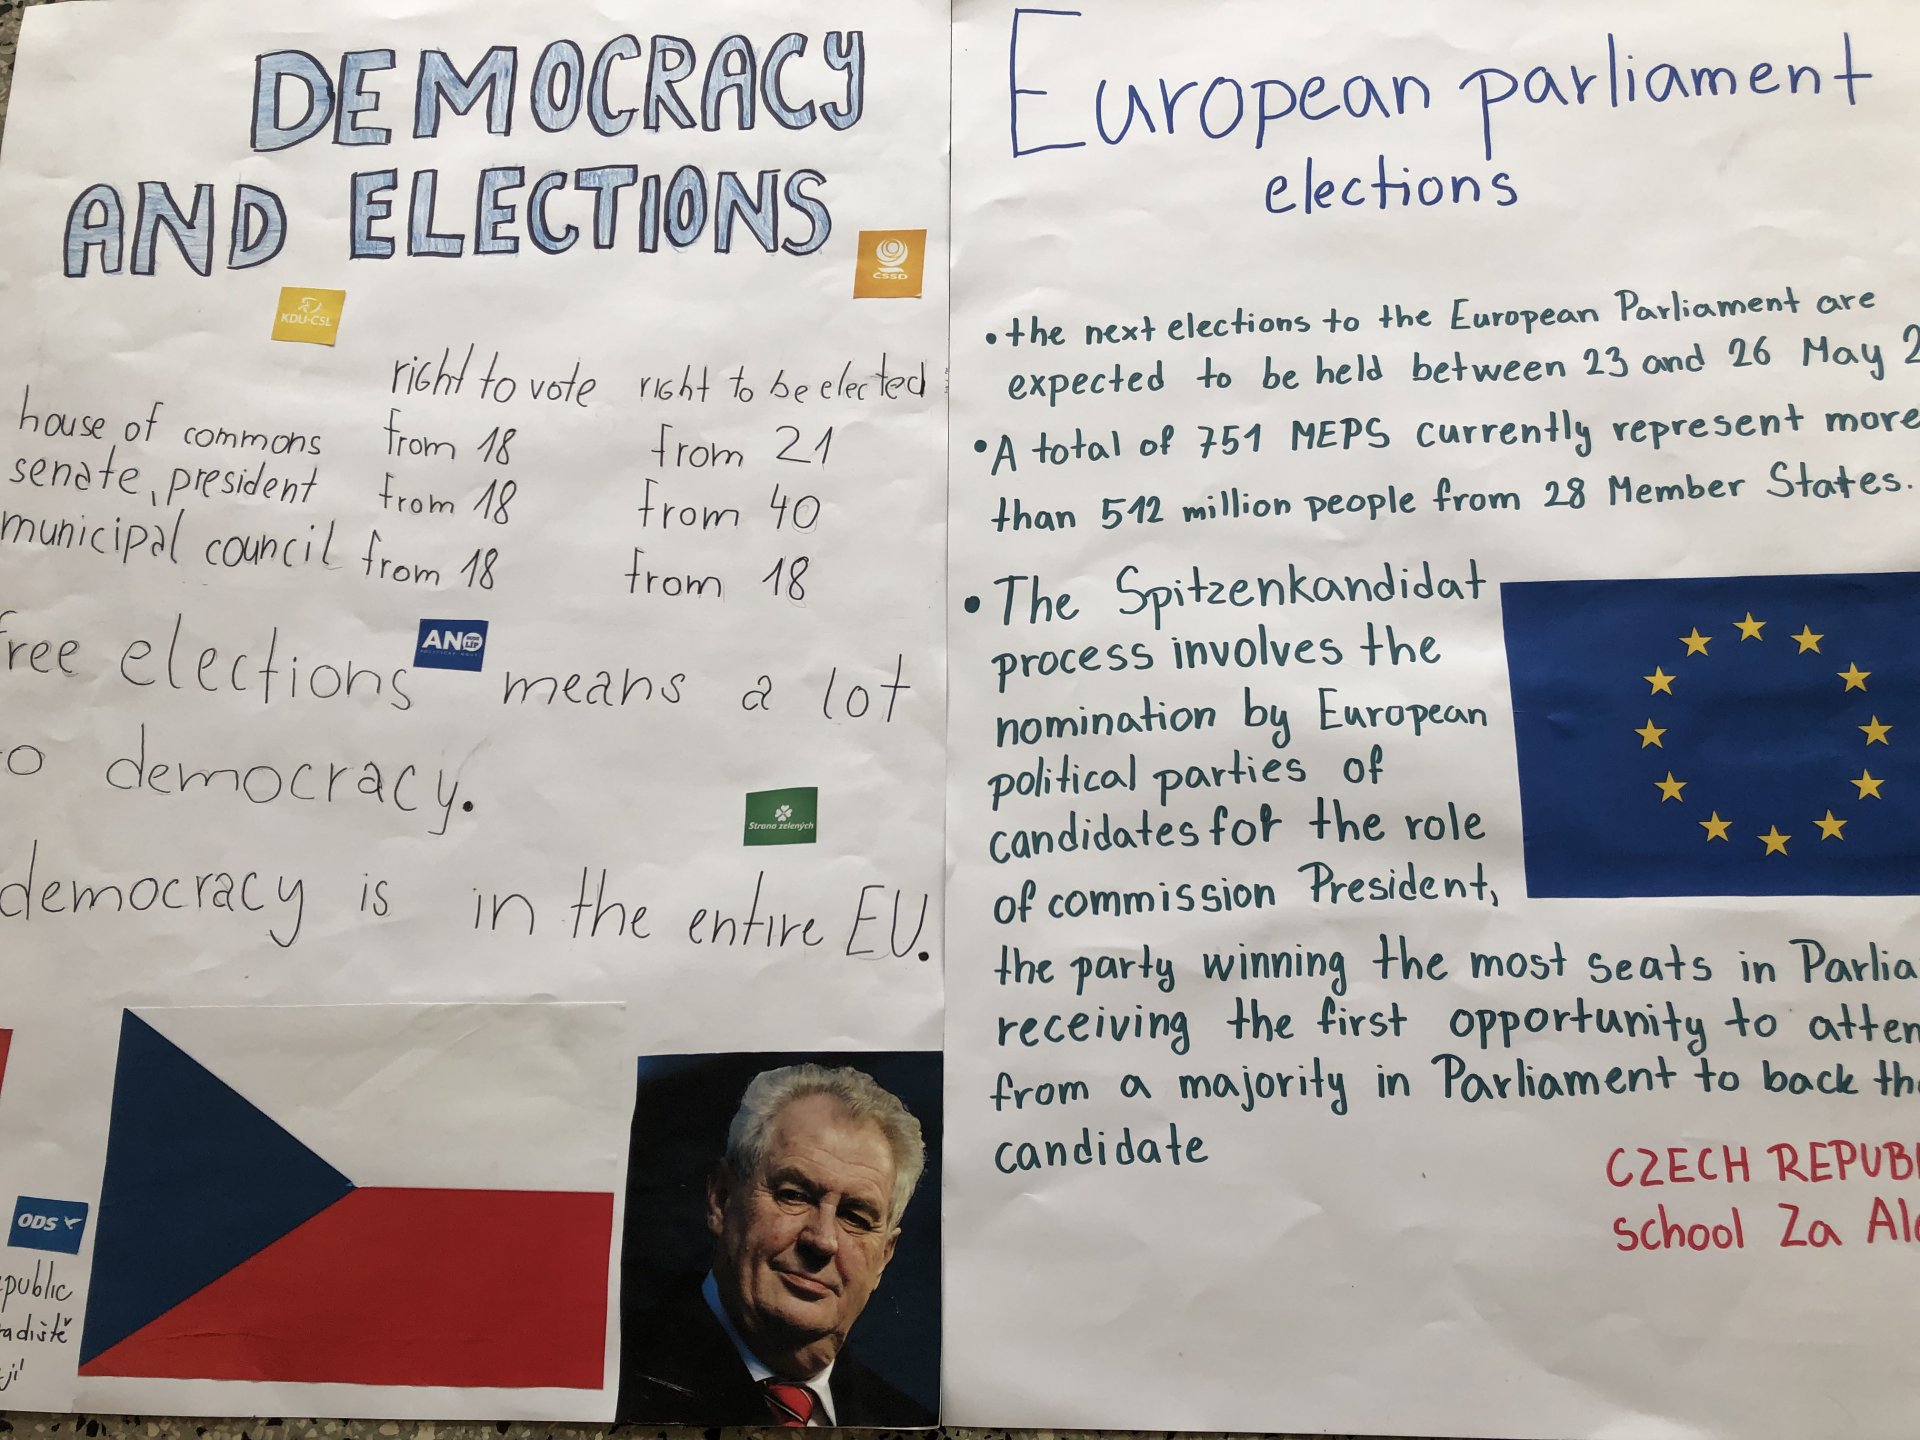 DEMOCRACY
AND ELECTIONS
ČSSD
KDU-ČSL
right to vote right to be elected
house of commons from 18 from 21
senate, president from 18 from 40
municipal council from 18 from 18
free elections means a lot
ANO
democracy.
Strana zelených
democracy is in the entire EU.
ODS
European parliament
elections
• the next elections to the European Parliament are
expected to be held between 23 and 26 May 2
• A total of 751 MEPS currently represent more
than 512 million people from 28 Member States.
• The Spitzenkandidat
process involves the
nomination by European
political parties of
candidates for the role
of commission President,
the party winning the most seats in Parlia
receiving the first opportunity to atten
from a majority in Parliament to back th
candidate
CZECH REPUB
school Za Al